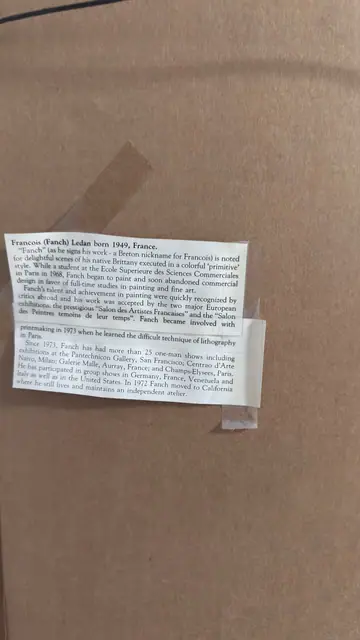 Francois (Fanch) Ledan born 1949, France.
"Fanch" (as he signs his work - a Breton nickname for Francois) is noted
for delightful scenes of his native Brittany executed in a colorful 'primitive'
style. While a student at the Ecole Superieure des Sciences Commerciales
in Paris in 1968, Fanch began to paint and soon abandoned commercial
design in favor of full-time studies in painting and fine art.
Fanch's talent and achievement in painting were quickly recognized by
critics abroad and his work was accepted by the two major European
exhibitions: the prestigious "Salon des Artistes Francaises" and the "Salon
des Peintres temoins de leur temps". Fanch became involved with
printmaking in 1973 when he learned the difficult technique of lithography
in Paris.
Since 1973, Fanch has had more than 25 one-man shows including
exhibitions at the Pantechnicon Gallery, San Francisco; Centrao d'Arte
Nano, Milan; Galerie Malle, Auray, France; and Champs-Elysees, Paris.
He has participated in group shows in Germany, France, Venezuela and
Italy as well as in the United States. In 1977 Fanch moved to California
where he still lives and maintains an independent atelier.